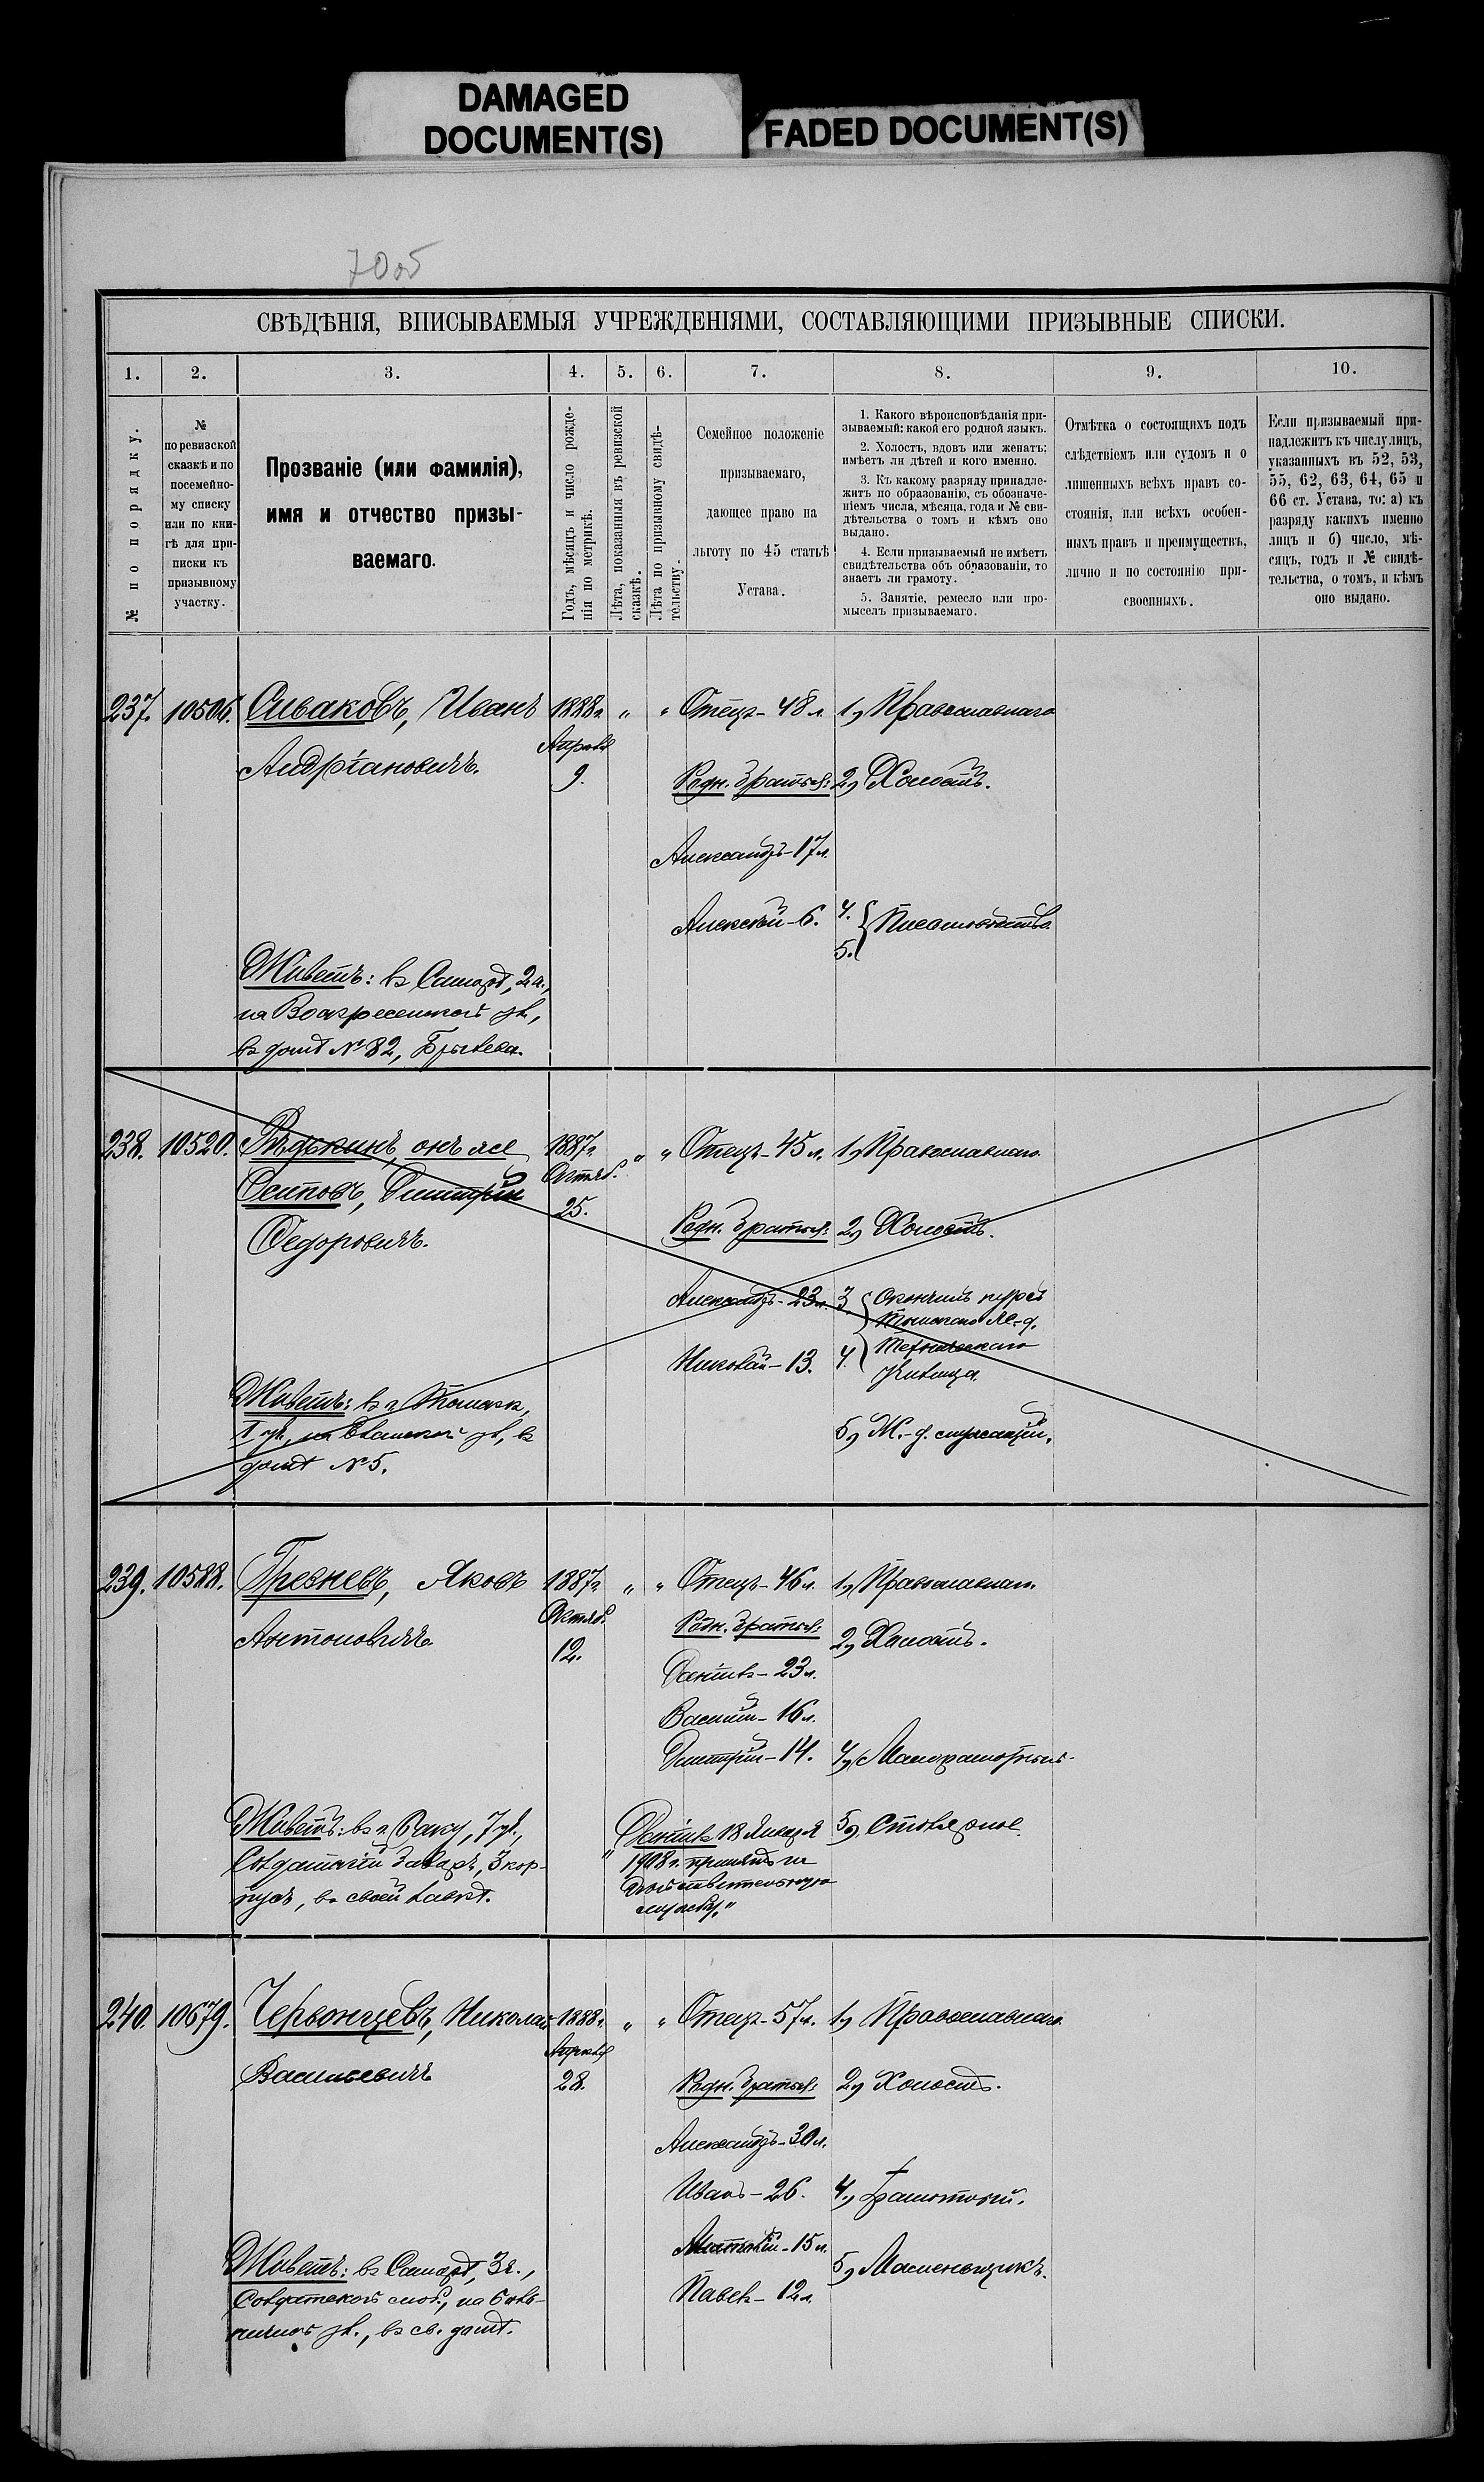 DAMAGED
DOCUMENT(S)
FADED DOCUMENT(S)
70об
СВѢДѢНІЯ, ВПИСЫВАЕМЫЯ УЧРЕЖДЕНІЯМИ, СОСТАВЛЯЮЩИМИ ПРИЗЫВНЫЕ СПИСКИ.
1. 2. 3. 4. 5. 6. 7. 8. 9. 10.
№ по порядку.
№
по ревизской
сказкѣ и по
посемейно-
му списку
или по кни-
гѣ для при-
писки къ
призывному
участку.
Прозваніе (или фамилія),
имя и отчество призы-
ваемаго.
Годъ, мѣсяцъ и число рожде-
нія по метрикѣ.
Лѣта, показанныя въ ревизской
сказкѣ.
Лѣта по призывному свидѣ-
тельству.
Семейное положеніе
призываемаго,
дающее право на
льготу по 45 статьѣ
Устава.
1. Какого вѣроисповѣданія при-
зываемый: какой его родной языкъ.
2. Холостъ, вдовъ или женатъ;
имѣетъ ли дѣтей и кого именно.
3. Къ какому разряду принадле-
житъ по образованію, съ обозначе-
ніемъ числа, мѣсяца, года и № сви-
дѣтельства о томъ и кѣмъ оно
выдано.
4. Если призываемый не имѣетъ
свидѣтельства объ образованіи, то
знаетъ ли грамоту.
5. Занятіе, ремесло или про-
мыселъ призываемаго.
Отмѣтка о состоящихъ подъ
слѣдствіемъ или судомъ и о
лишенныхъ всѣхъ правъ со-
стоянія, или всѣхъ особен-
ныхъ правъ и преимуществъ,
лично и по состоянію при-
своенныхъ.
Если призываемый при-
надлежитъ къ числу лицъ,
указанныхъ въ 52, 53,
55, 62, 63, 64, 65 и
66 ст. Устава, то: а) къ
разряду какихъ именно
лицъ и б) число, мѣ-
сяцъ, годъ и № свидѣ-
тельства, о томъ, и кѣмъ
оно выдано.
237. 10506. Сиваковъ, Иванъ 1888г. " " Отецъ - 48 л. 1) Православнаго
Андріановичъ. Апрѣля
9. Родн. братья: 2) Холостъ.
Александръ - 17 л.
Алексѣй - 6. 4. 5. { Писмоводство.
Живетъ: въ Самарѣ, 2 ч.,
на Воскресенской ул.,
въ домѣ № 82,
238. 10520. Рѣдькинъ, онъ же 1887г. " " Отецъ - 45 л. 1) Православнаго
Осиповъ, Димитрій Октяб.
25. Родн. братья: 2) Холостъ.
Федоровичъ.
Александръ - 23 л. 3. { Окончилъ курсъ
Томскаго Ж-д.
Николай - 13. 4. { Техническаго
Училища.
Живетъ: въ г. Томскѣ,
1 уч., на ул., въ
домѣ № 5.
5) Ж.-д. служащій.
239. 10588. Грезневъ, Яковъ 1887г. " " Отецъ - 46 л. 1) Православнаго.
Антоновичъ Октяб.
12. Родн. братья: 2) Холостъ.
Даніилъ - 23 л.
Василій - 16 л.
Димитрій - 14. 4) Малограмотный.
Живетъ: въ г. Баку, 7 уч.,
Солдатскій базаръ, 3 кор-
пусъ, въ своей лавкѣ.
"Даніилъ 18 Января 5) Столярное.
1908 г. принятъ на
дѣйствительную
службу."
240. 10679. Червонцевъ, Николай 1888г. " " Отецъ - 57 л. 1) Православнаго.
Васильевичъ Апрѣля
28. Родн. братья: 2) Холостъ.
Александръ - 30 л.
Иванъ - 26. 4) Грамотный.
Анатолій - 15 л.
5) Масленьщикъ.
Павелъ - 12 л.
Живетъ: въ Самарѣ, 3 ч.,
Солдатской слоб., на Боль-
ничной ул., въ св. домѣ.